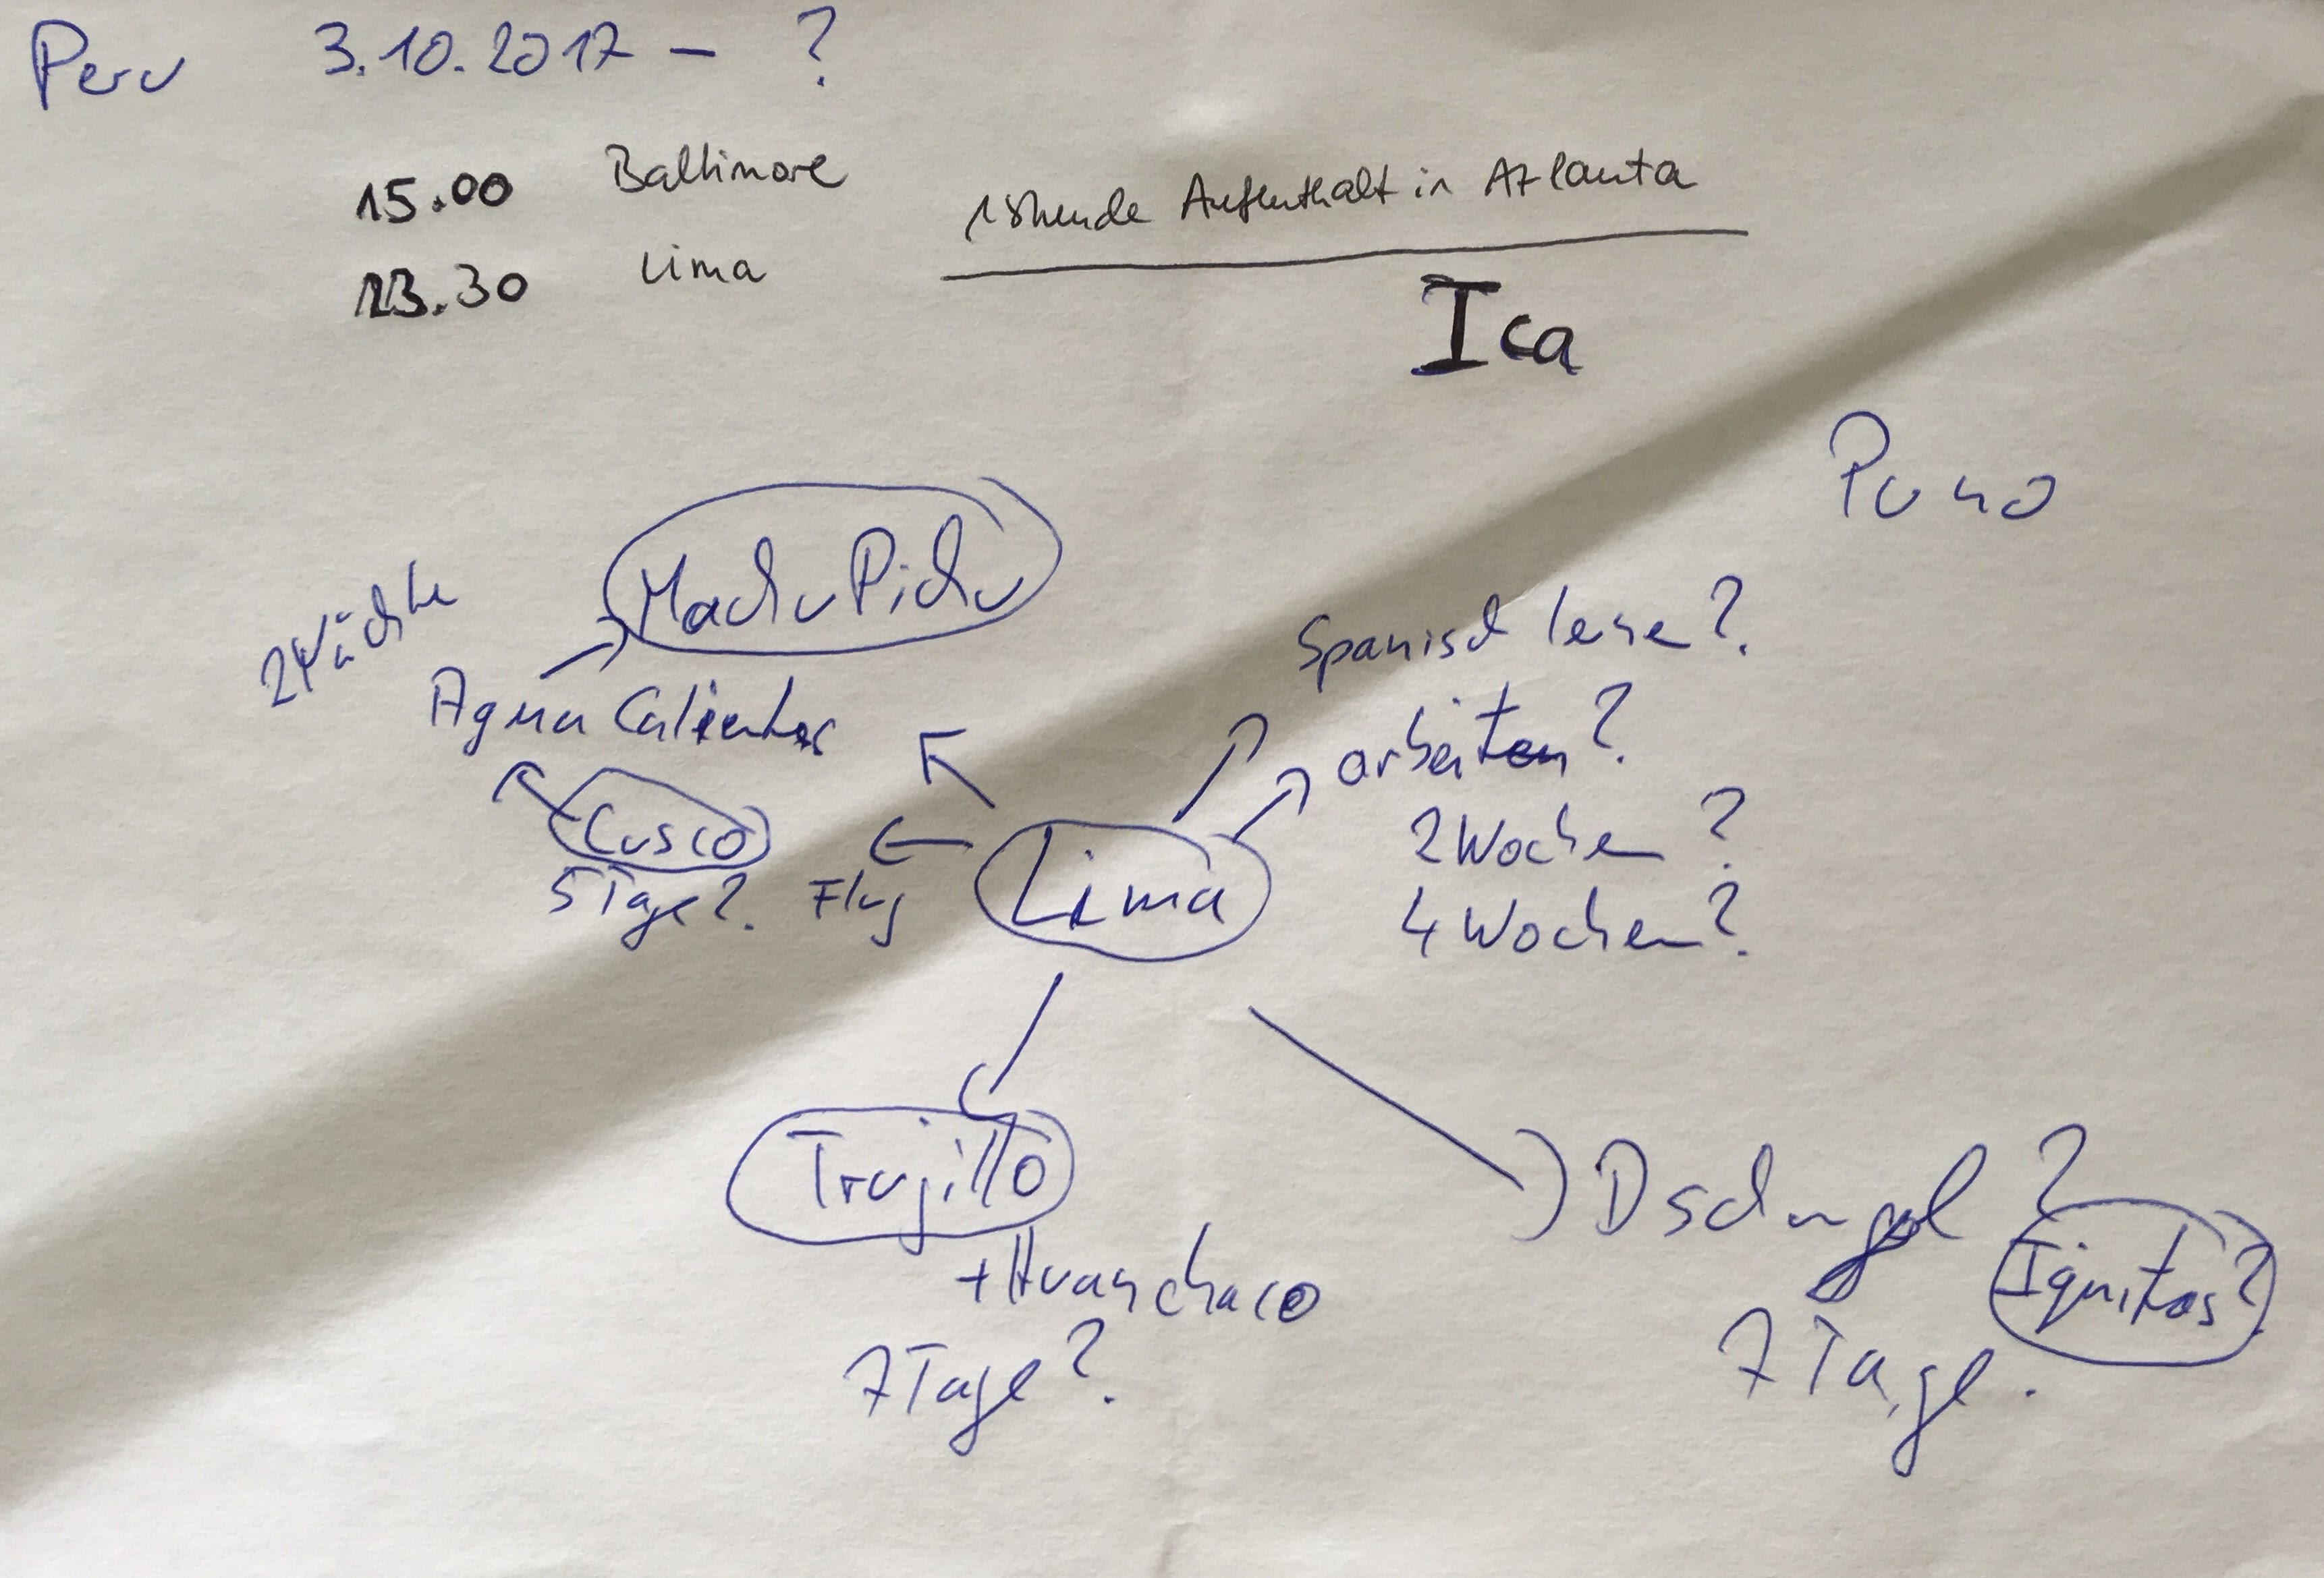 Peru 3.10.2017 – ?
15.00 Baltimore
1 Stunde Aufenthalt in Atlanta
23.30 Lima
Ica
Puno
Machu Pichu
2 Nächte
Agua Calientes
Spanisch lerne?
arbeiten?
Cusco
5 Tage?
Flug
Lima
2 Wochen?
4 Wochen?
Trujillo
+ Huanchaco
7 Tage?
Dschungel?
Iquitos?
7 Tage.